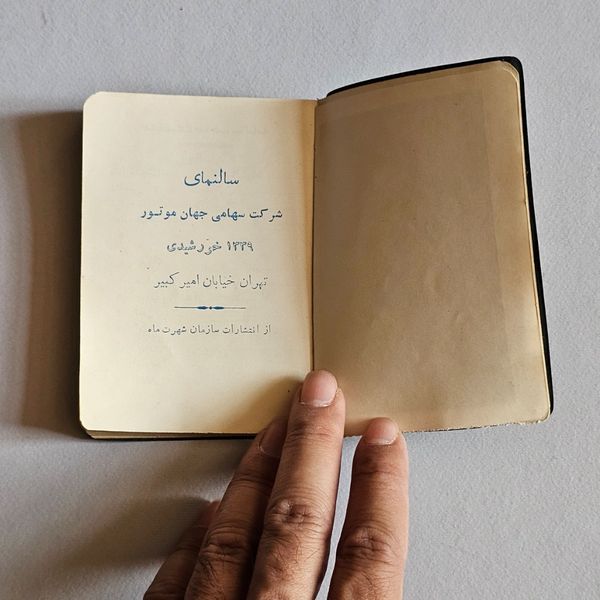 سالنمای
شرکت سهامی جهان موتور
۱۳۳۹ خورشیدی
تهران خیابان امیر کبیر
از انتشارات سازمان شهرت ماه